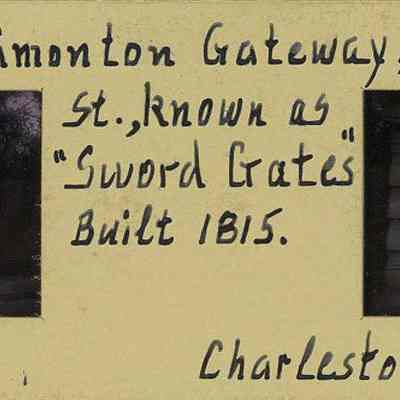 imonton Gateway,
St., known as
"Sword Gates"
Built 1815.
Charlesto